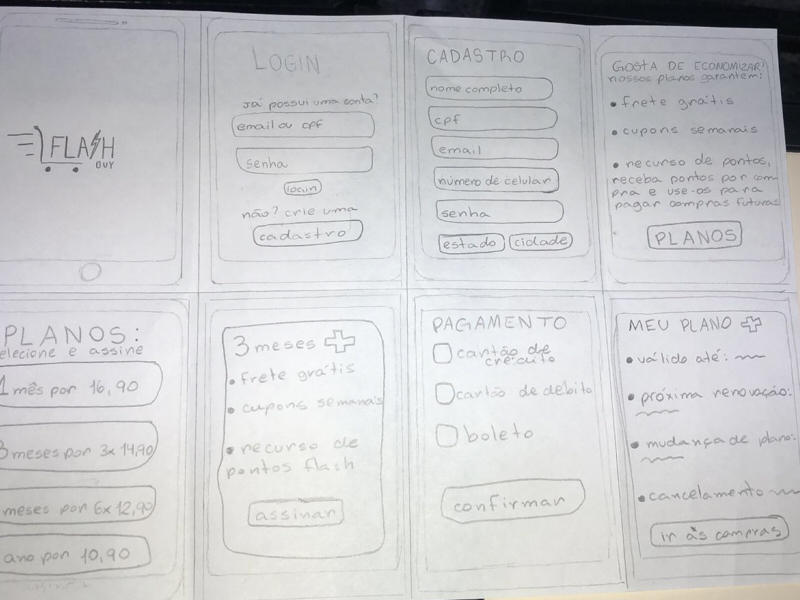 FLASH
BUY
LOGIN
Já possui uma conta?
email ou cpf
senha
login
não? crie uma
cadastro
CADASTRO
nome completo
cpf
email
número de celular
senha
estado
cidade
GOSTA DE ECONOMIZAR?
nossos planos garantem:
• frete grátis
• cupons semanais
• recurso de pontos,
receba pontos por com
pra e use-os para
pagar compras futuras
PLANOS
PLANOS:
elecione e assine
1 mês por 16,90
3 meses por 3x 14,90
meses por 6x 12,90
ano por 10,90
3 meses
• frete grátis
• cupons semanais
• recurso de
pontos flash
assinar
PAGAMENTO
cartão de
crédito
cartão de débito
boleto
confirmar
MEU PLANO
• válido até:
• próxima renovação:
• mudança de plano:
• cancelamento
ir às compras